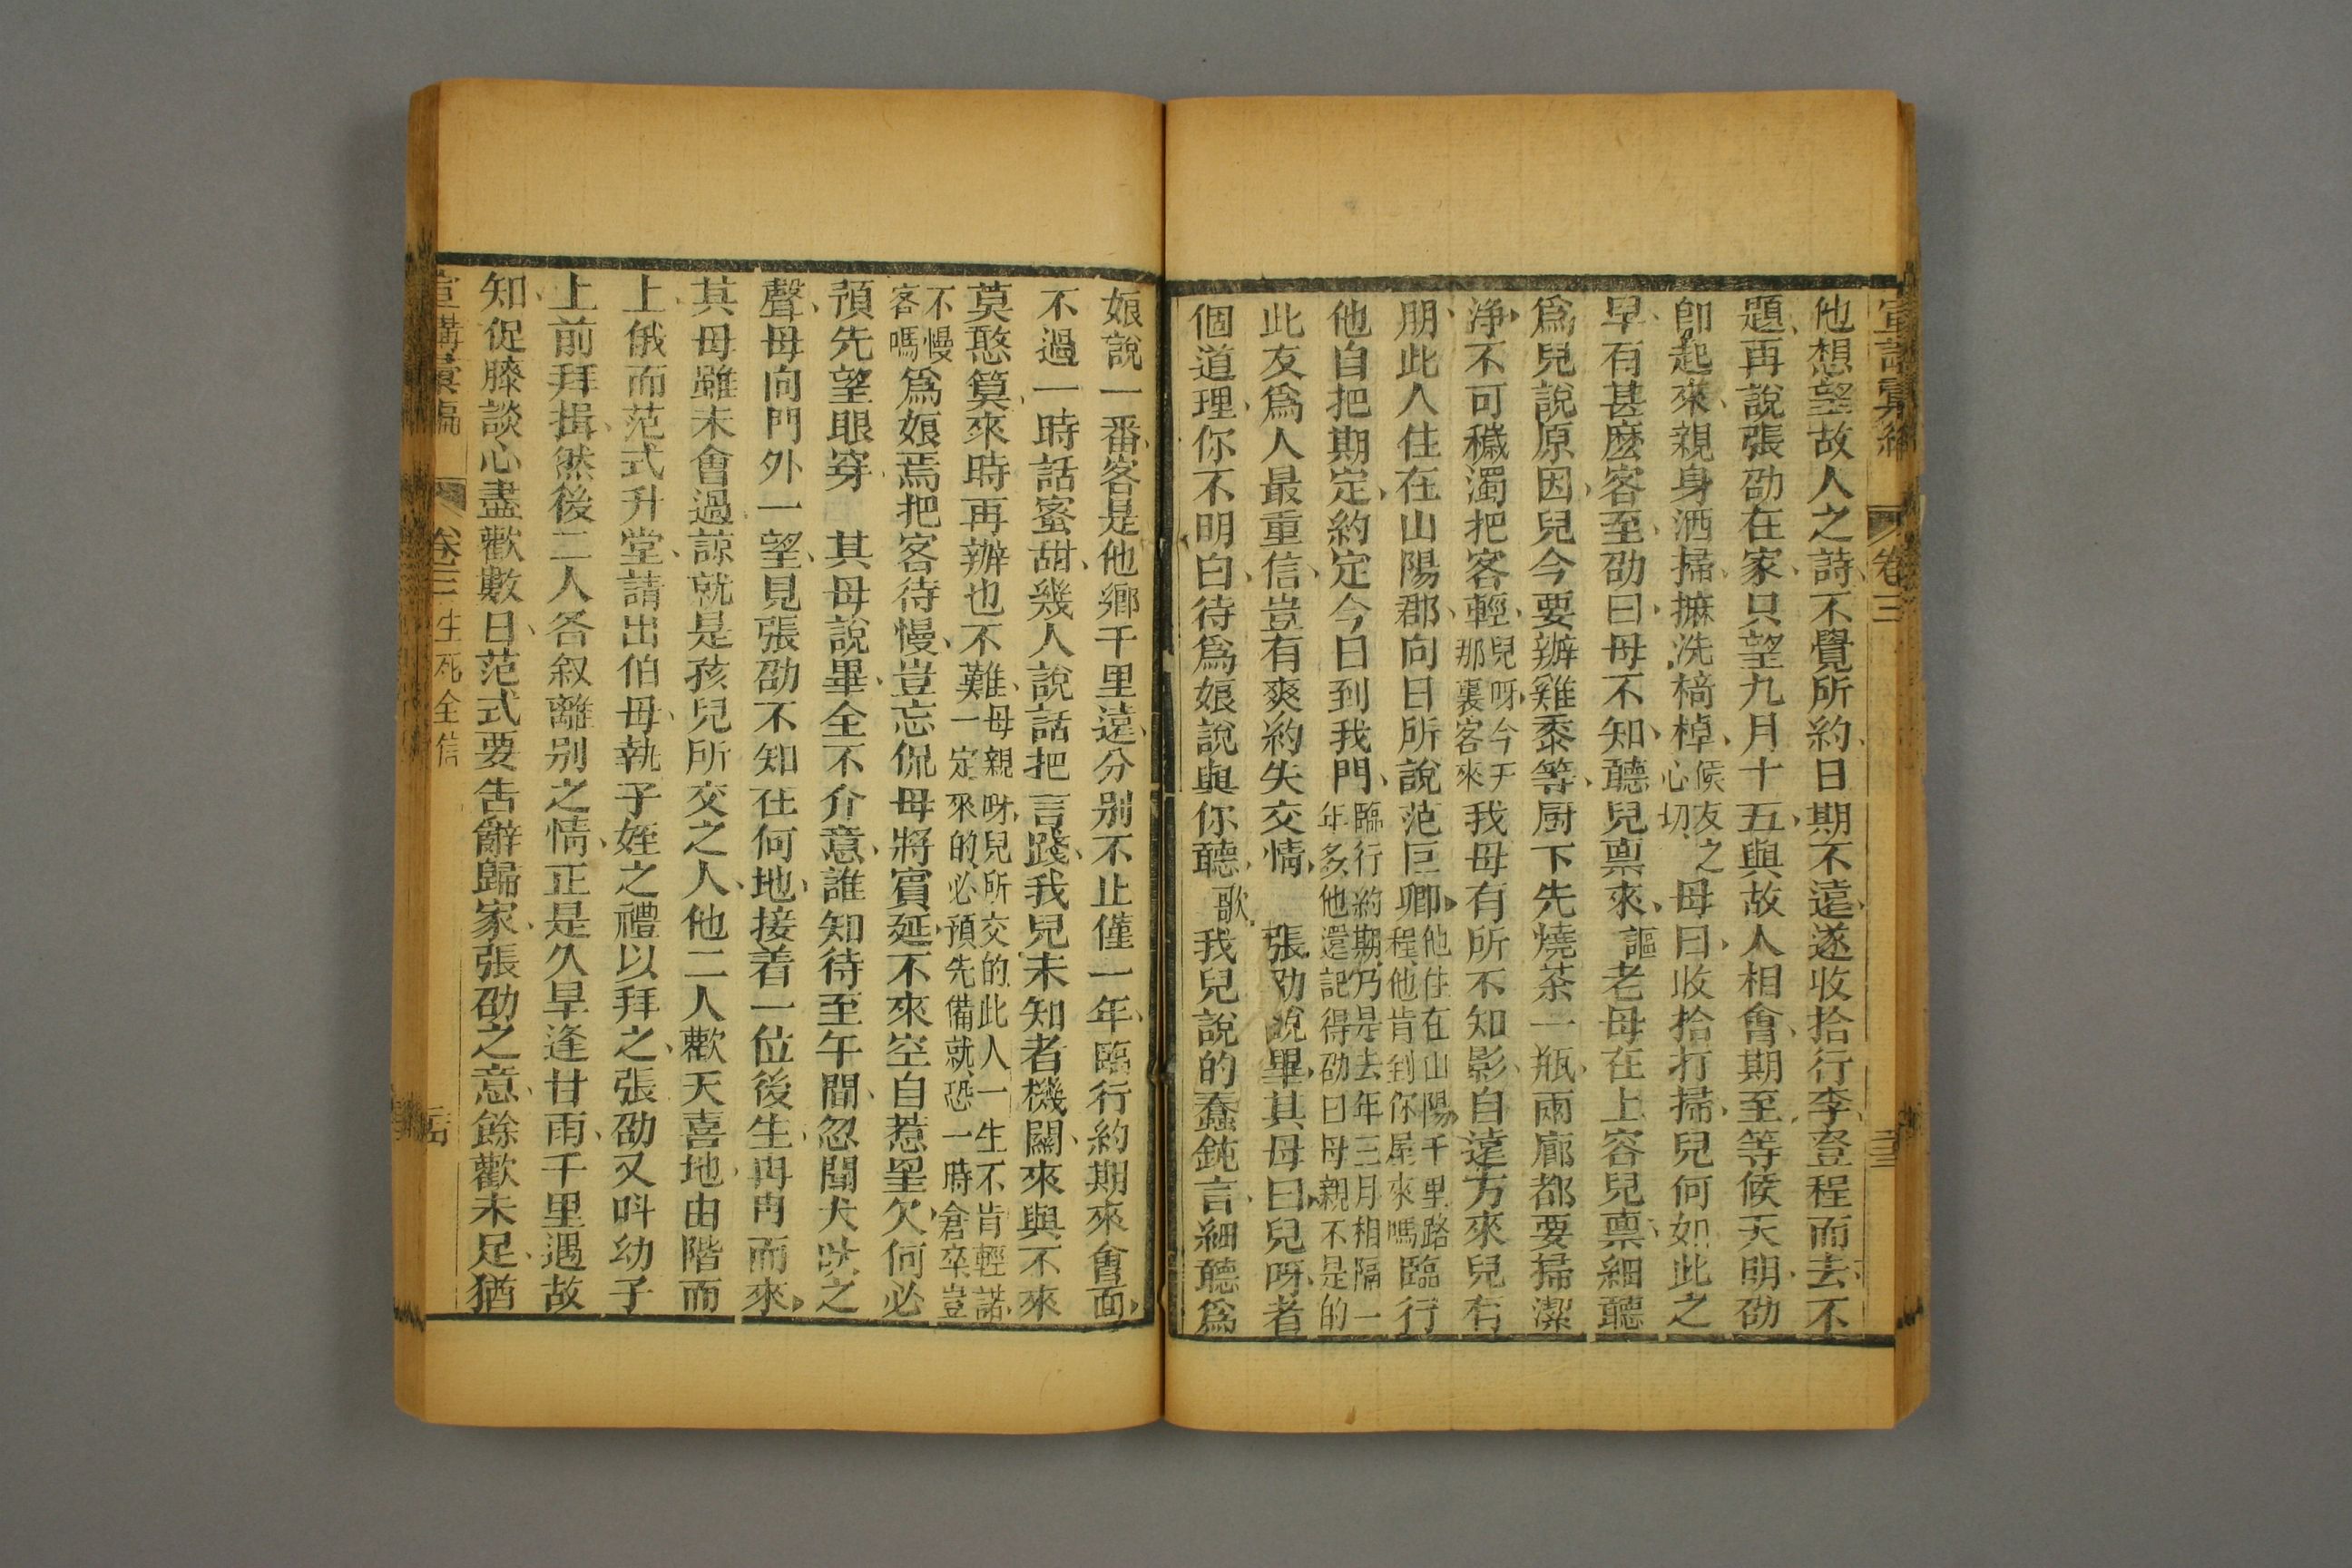 宣講彙編 卷三
他想望故人之詩、不覺所約、日期不遠、遂收拾行李、登程而去、不
題、再說張劭在家、只望九月十五、與故人相會、期至等候天明、劭
即起來、親身洒掃、擵洗椅棹、候友之心切、母曰、收拾打掃、兒何如此之
早、有甚麽客至、劭曰、母不知、聽兒禀來、謳老母在上容兒禀、細聽
爲兒說原因、兒今要辦雞黍等、厨下先燒茶一瓶、兩廊都要掃潔
净、不可穢濁把客輕、兒呀、今天那裏客來我母有所不知影、自遠方來兒有
朋、此人住在山陽郡、向日所說范巨卿、他住在山陽、千里路程、他肯到你屋來嗎臨行
他自把期定、約定今日到我門、臨行約期、乃是去年三月、相隔一年多、他還記得、劭曰、母親、不是的
此友爲人最重信、豈有爽約失交情、　張劭說畢、其母曰、兒呀、者
個道理、你不明白、待爲娘說與你聽、歌我兒說的蠢鈍言、細聽爲
娘說一番、客是他鄉千里遠、分别不止僅一年、臨行約期來會面、
不過一時話蜜甜、幾人說話把言踐、我兒未知者機關、來與不來
莫憨筭、來時再辦也不難、母親呀、兒所交的、此人一生不肯輕諾、一定來的、必預先備就、恐一時倉卒、豈
不慢客嗎爲娘焉把客待慢、豈忘侃母將賓延、不來空自惹罣欠、何必
預先望眼穿　其母說畢、全不介意、誰知待至午間、忽聞犬吠之
聲、母向門外一望、見張劭不知在何地、接着一位後生、冉冉而來、
其母雖未會過、諒就是孩兒所交之人、他二人歡天喜地、由階而
上、俄而范式升堂、請出伯母、執子姪之禮以拜之、張劭又呌幼子
上前拜揖、然後二人各叙離别之情、正是久旱逢甘雨、千里遇故
知、促膝談心、盡歡數日、范式要告辭歸家、張劭之意、餘歡未足、猶
宣講彙編 卷三 生死全信